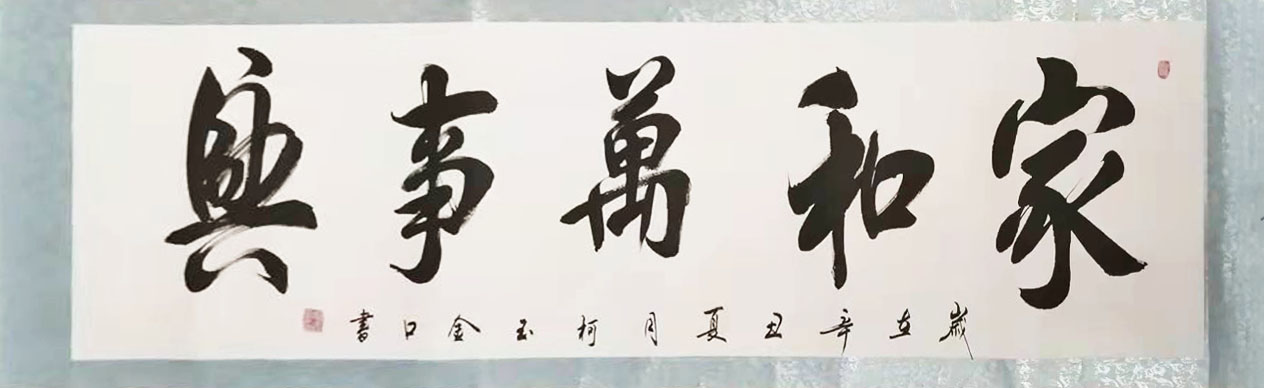 家和萬事興
歲在辛丑夏月柯玉金口書